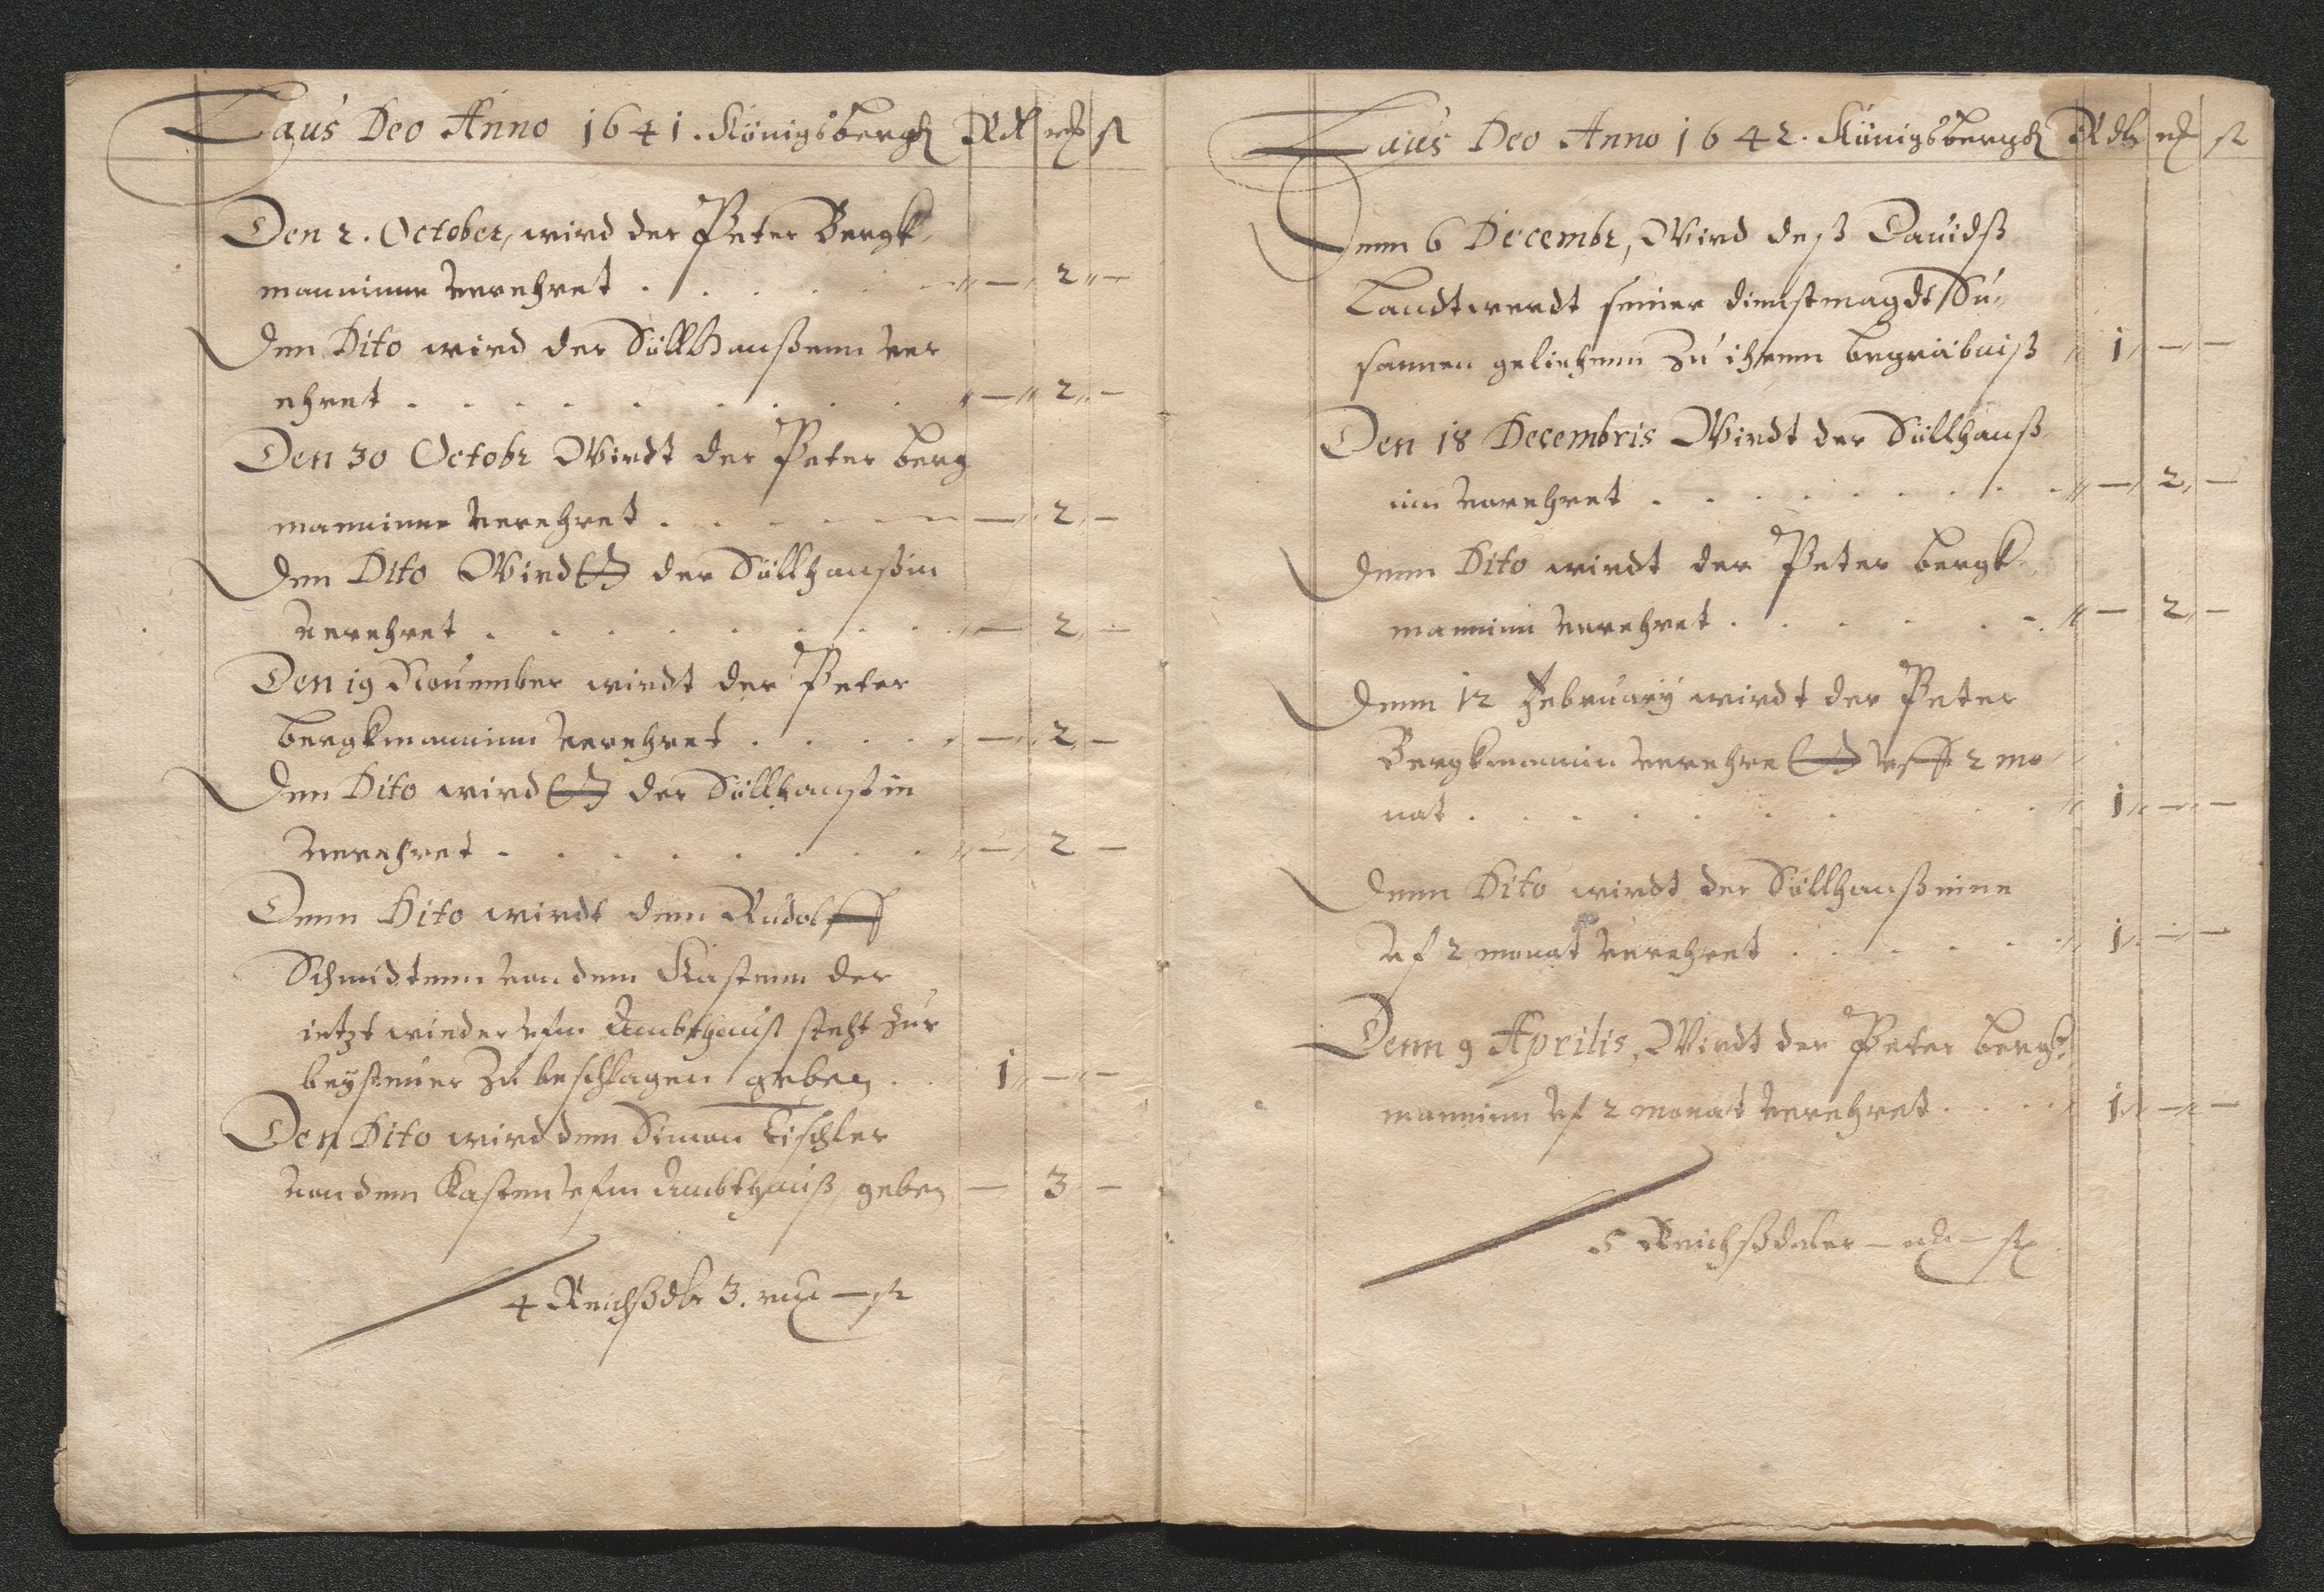 Laus Deo Anno 1641. Königsbergh Rd
Den 2. October, wird der Peter Bergk
manninne verehret . . . . . — 2 —
Den Dito wird der Söllhaußenn ver
ehret . . . . . . . . — 2 —
Den 30 Octobr Wirdt der Peter berg
manninne verehret . . . . . — 2 —
Den Dito Wirdt der Söllhaußin
verehret . . . . . . . . — 2 —
Den 19 November wirdt der Peter
bergkmanninn verehret . . . . — 2 —
Den Dito wirdt der Söllhaußin
verehret . . . . . . . . — 2 —
Denn Dito wirdt dem Rudolff
Schmidtenn von dem Kastenn der
ietzt wieder ufm Ambthauß steht zur
beysteuer zu beschlagen geben . . 1 — —
Den Dito wird dem Simon Tischler
von dem Kasten ufm Ambthauß geben — 3 —
4 Reichßdlr 3. —
Laus Deo Anno 1642. Königsbergh Rdlr
Denn 6 Decembr, Wird deß Davidß
Landtwerdt seiner dienstmagdt Su¬
sannen geliehenn zu ihrem begräbniß 1 — —
Den 18 Decembris Wirdt der Söllhauß
inn verehret . . . . . . . — 2 —
Denn Dito wirdt der Peter bergk
mannin verehret . . . . . . — 2 —
Denn 12 February wirdt der Peter
Bergkmannin verehret uff 2 mo
nat . . . . . . . . 1 — —
Denn Dito wirdt der Söllhaußinne
uf 2 monat verehret . . . . . 1 — —
Denn 9 Aprilis, Wirdt der Peter bergk
manninn uf 2 monat verehret . . . 1 — —
5 Reichßdaler — —